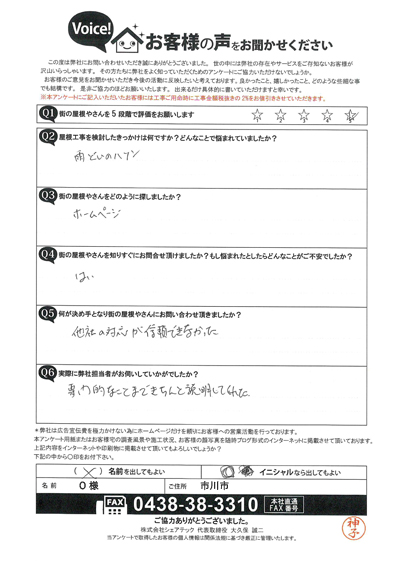 Voice!
お客様の声をお聞かせください
この度は弊社にお問い合わせいただき誠にありがとうございました。世の中には弊社の存在やサービスをご存知ないお客様が
沢山いらっしゃいます。その方たちも弊社をよく知っていただくためのアンケートにご協力いただけないでしょうか。
お客様のご意見をお聞かせいただき今後の活動に反映したいと考えております。良かったこと、嬉しかったこと、どのような些細な事
でも結構です。是非ご協力のほどお願いいたします。出来るだけ具体的に書いていただけますと幸いです。
※本アンケートにご記入いただいたお客様には工事ご用命時に工事金額税抜きの2%をお値引きさせていただきます。
Q1 街の屋根やさんを5段階で評価をお願いします
Q2 屋根工事を検討したきっかけは何ですか?どんなことで悩まれていましたか?
雨どいのハソン
Q3 街の屋根やさんをどのように探しましたか?
ホームページ
Q4 街の屋根やさんを知りすぐにお問合せ頂けましたか?もし悩まれたとしたらどんなことがご不安でしたか?
はい
Q5 何が決め手となり街の屋根やさんにお問い合わせ頂きましたか?
他社の対応が信頼できなかった
Q6 実際に弊社担当者がお伺いしていかがでしたか?
専門的なことまできちんと説明してくれた
*弊社は広告宣伝費を極力かけない為にホームページだけを頼りにお客様への営業活動を行っております。
本アンケート用紙またはお客様宅の調査風景や施工状況、お客様の顔写真を随時ブログ形式のインターネットに掲載させて頂いております。
上記内容をインターネットや印刷物に掲載させて頂いてもよろしいでしょうか?
下記の中から○印をお付け下さい。
(×)名前を出してもよい
イニシャルなら出してもよい
名前 O 様 ご住所 市川市
FAX 0438-38-3310 本社直通 FAX番号
ご協力ありがとうございました。
株式会社シェアテック 代表取締役 大久保 誠二
当アンケートで取得したお客様の個人情報は関係法規に基づき厳正に管理いたします。
神子